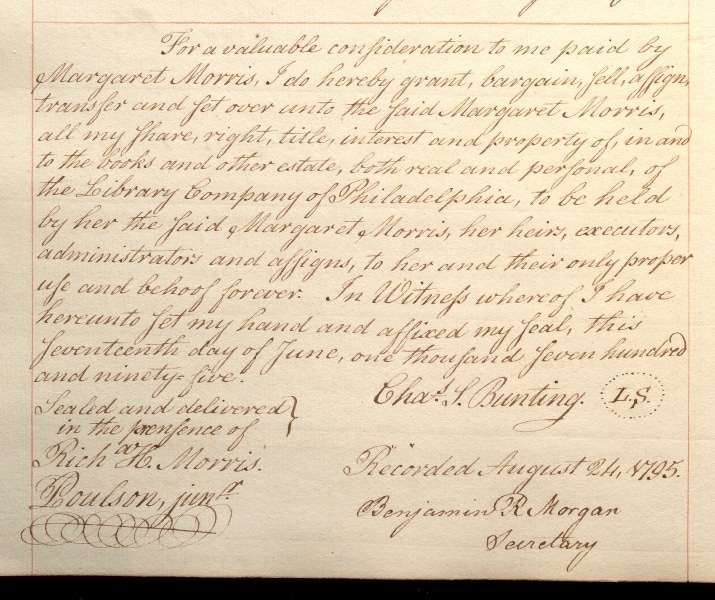 For a valuable conſideration to me paid by
Margaret Morris, I do hereby grant, bargain, ſell, aſſign,
transfer and ſet over unto the ſaid Margaret Morris,
all my ſhare, right, title, interest and property of, in and
to the books and other estate, both real and perſonal, of
the Library Company of Philadelphia, to be held
by her the ſaid Margaret Morris, her heirs, executors,
administrators and aſſigns, to her and their only proper
uſe and behoof forever. In Witneſs whereof I have
hereunto ſet my hand and affixed my ſeal, this
ſeventeenth day of June, one thousand ſeven hundred
and ninety-five.
Chas. S. Bunting. L.S.
Sealed and delivered }
in the presence of
Richd. H. Morris.
Poulson, junr.
Recorded August 24, 1795.
Benjamin R Morgan
Secretary